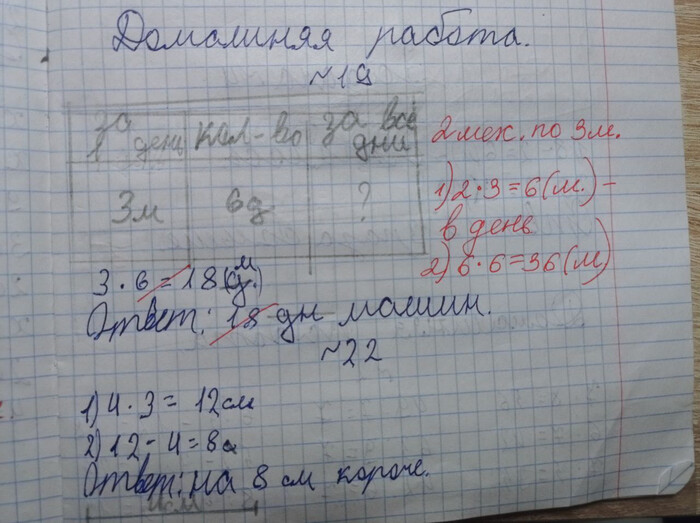 Домашняя работа.
№19
за 1 день кол-во за все дни
3м 6д ?
2 мех. по 3м.
1) 2·3=6(м.) -
в день
2) 6·6=36(м)
3·6=18(м.)
Ответ: 18 дн машин.
№22
1) 4·3= 12см
2) 12-4=8с
Ответ: на 8 см короче.
4см 4